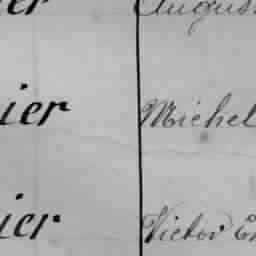 ier August
ier Michel
ier Victor E